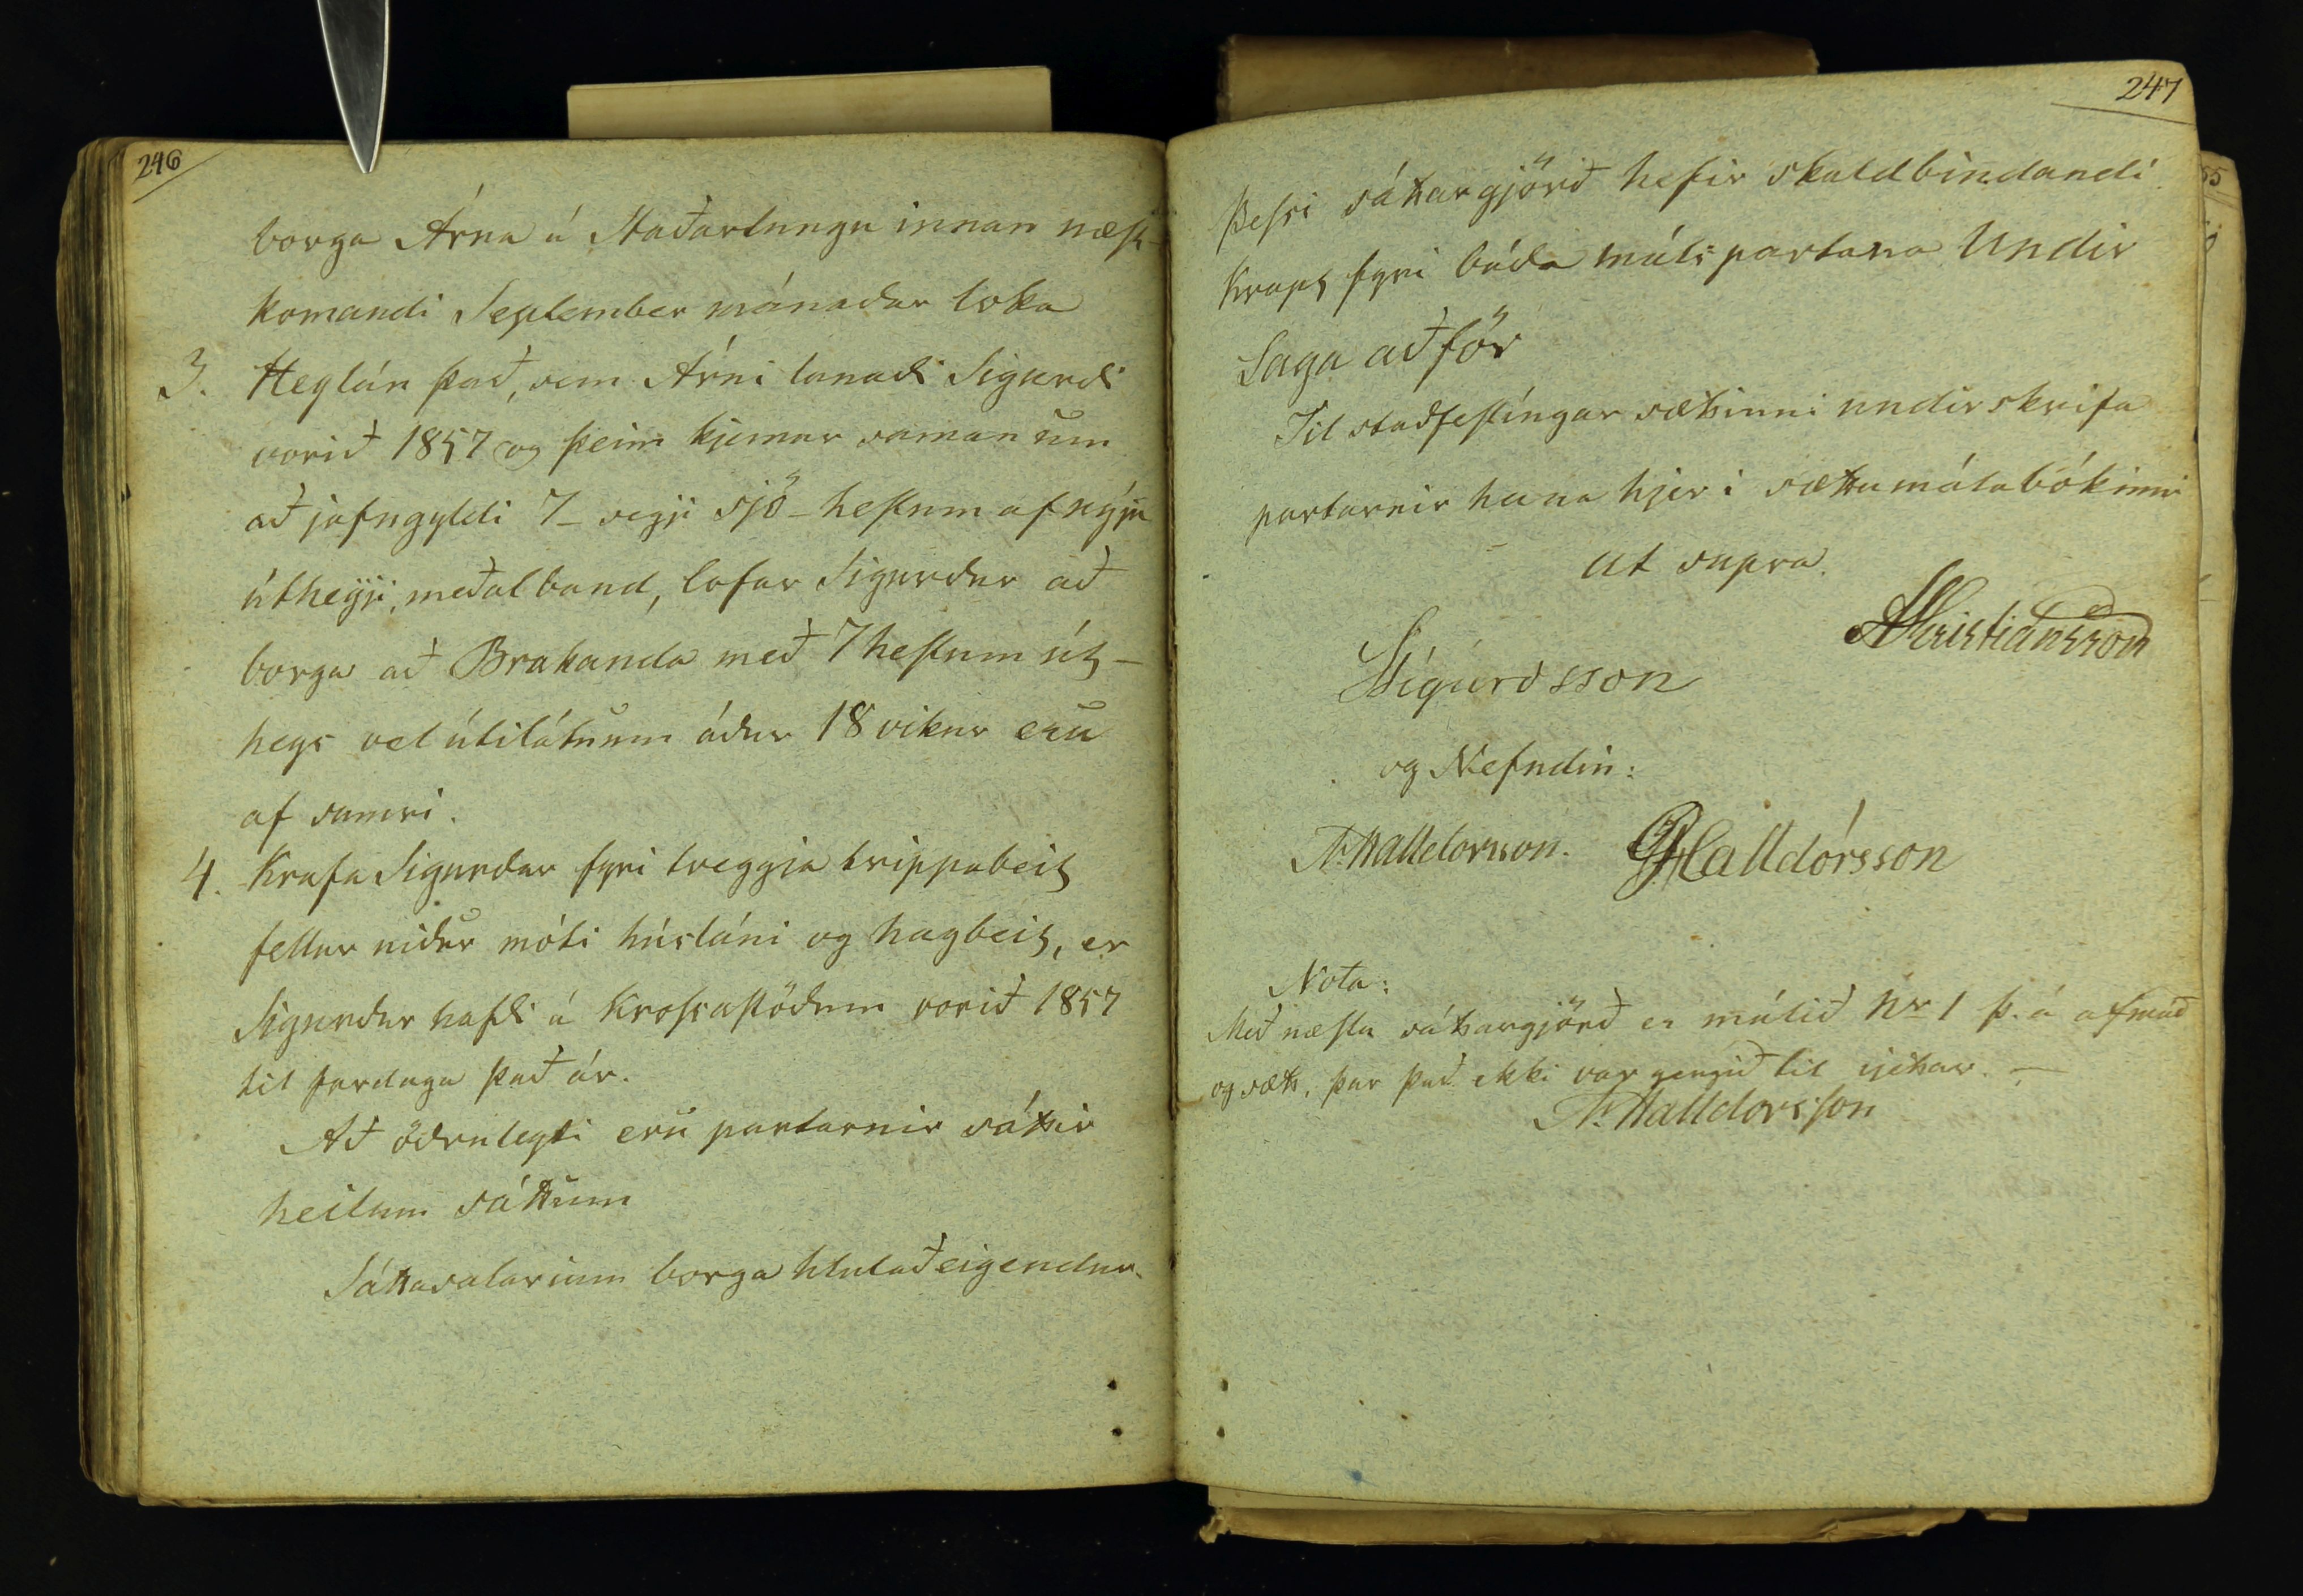 246
borga Árna á Staðartungu innan næst-
komandi September mánaðar loka
3. Heylán það, sem Árni lánaði Sigurði
vorið 1857 og þeim kjemur saman um
að jafngyldi 7 _ segji sjö _ hestum af nýju
útheyji, meðalband, lofar Sigurður að
borga að Brakanda með 7 hestum út-
heys vel útilátnum áður 18 vikur eru
af sumri.
4. Krafa Sigurðar fyri tveggja trippabeit
fellur niður móti húsláni og hagbeit, er
Sigurður hafði á Krossastöðum vorið 1857
til fardaga það ár.
Að öðruleyti eru partarnir sáttir
heilum sáttum
Sáttasalarium borga hlutaðeigendur.
247
Þessi sáttargjörð hefir skuldbindandi
krapt fyri báða málspartana undir
Laga aðför
Til staðfestíngar sættinni undirskrifa
partarnir hana hjer i sættamálabókinni
ut supra.
Christiánsson
SSigurdsson
og Nefndin:
Halldorsson. GHalldórsson
Nota:
Með næstu sáttargjörð er málið Nr 1 þ. á afmáð
og sætt, þar það ekki var gengið til rjettar. _
Halldorsson